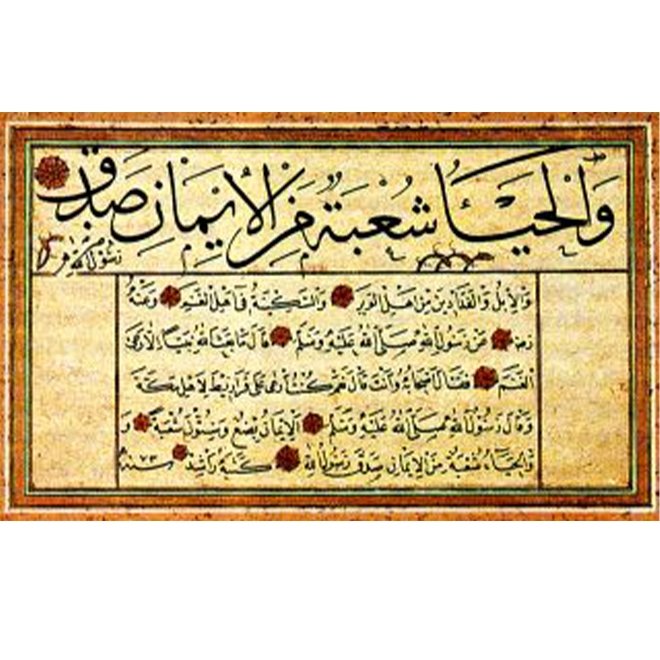 والحياء شعبة من الإيمان صدق
رسول الله
والإبل والفدادين من أهل الوبر والسكينة في أهل الغنم وعنه
عن رسول الله صلى الله عليه وسلم قال ما بعث الله نبيا إلا رعى
الغنم فقال أصحابه وأنت قال نعم كنت أرعى على قراريط لأهل مكة
وقال رسول الله صلى الله عليه وسلم الإيمان بضع وستون شعبة و
والحياء شعبة من الإيمان صدق رسول الله كتبه راشد سنة